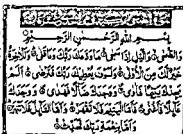 بِسْمِ اللَّهِ الرَّحْمَٰنِ الرَّحِيمِ
وَالضُّحَىٰ وَاللَّيْلِ إِذَا سَجَىٰ مَا وَدَّعَكَ رَبُّكَ وَمَا قَلَىٰ وَلَلْآخِرَةُ
خَيْرٌ لَكَ مِنَ الْأُولَىٰ وَلَسَوْفَ يُعْطِيكَ رَبُّكَ فَتَرْضَىٰ أَلَمْ
يَجِدْكَ يَتِيمًا فَآوَىٰ وَوَجَدَكَ ضَالًّا فَهَدَىٰ وَوَجَدَكَ
عَائِلًا فَأَغْنَىٰ فَأَمَّا الْيَتِيمَ فَلَا تَقْهَرْ وَأَمَّا السَّائِلَ فَلَا تَنْهَرْ
وَأَمَّا بِنِعْمَةِ رَبِّكَ فَحَدِّثْ